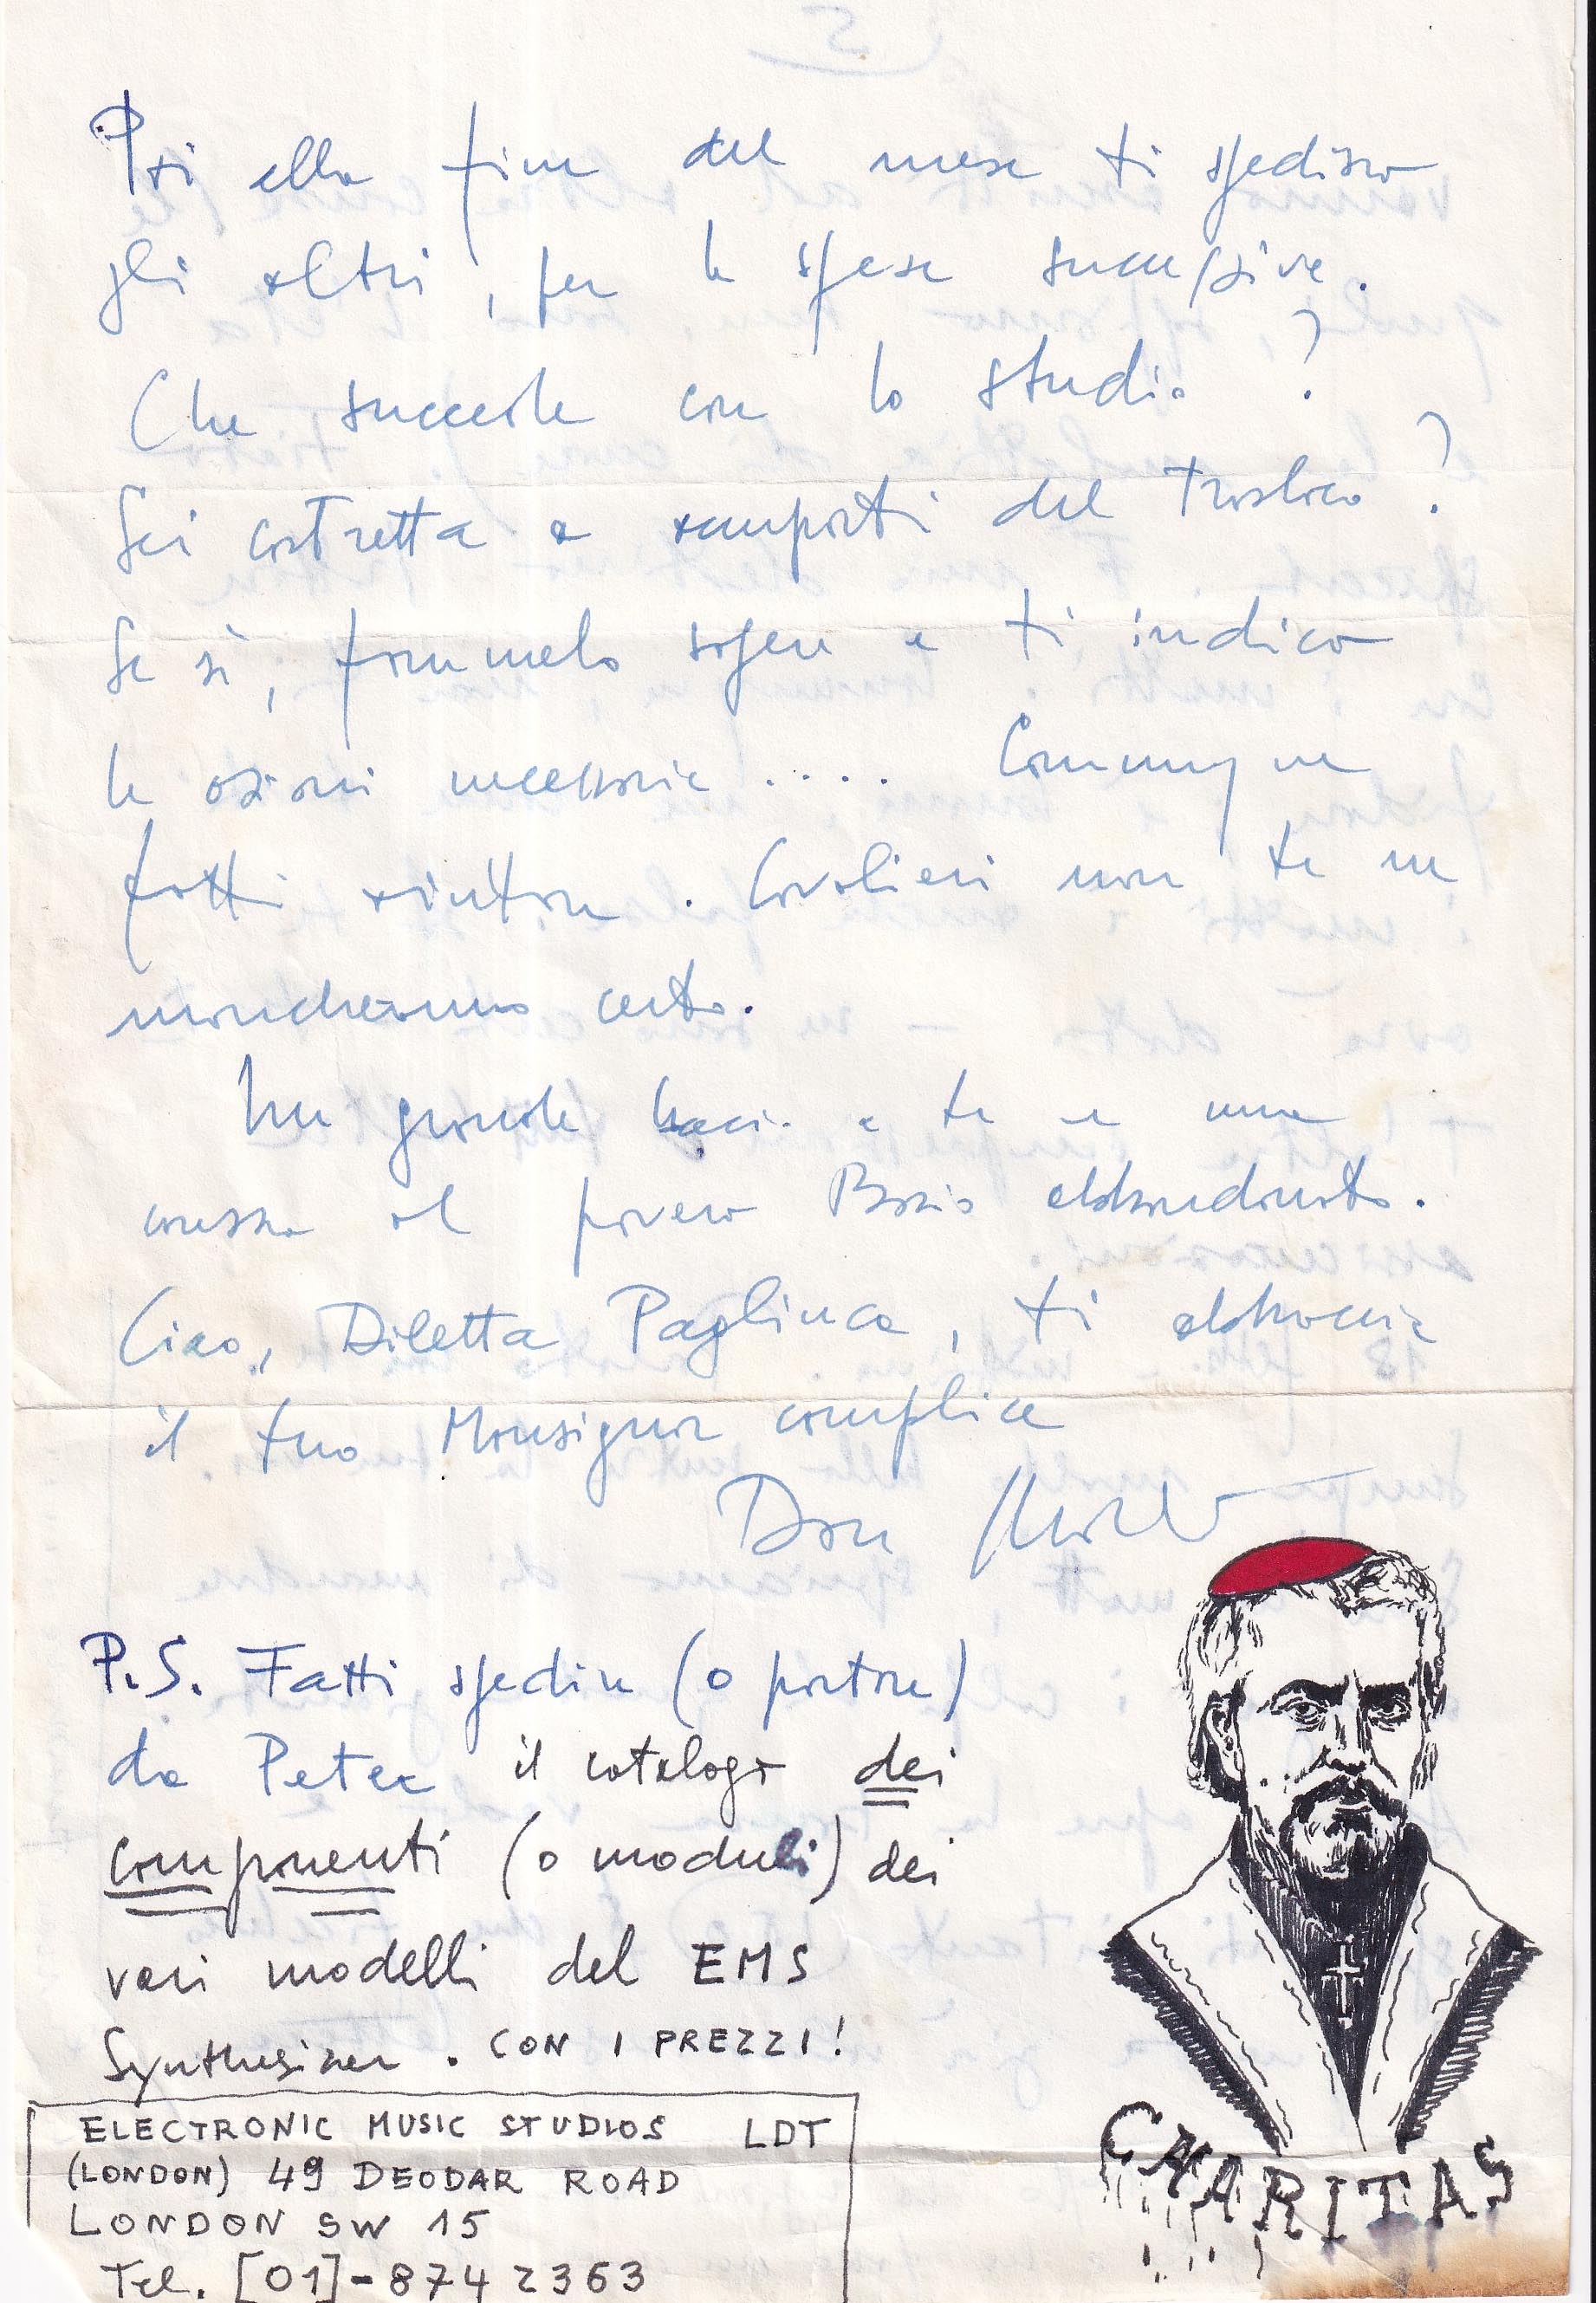 5
Poi alla fine del mese ti spedisco
gli altri, per le spese successive.
Che succede con lo studio?
Sei costretta a occuparti del trasloco?
Se sì, fammelo sapere e ti indico
le azioni necessarie .... Comunque
fatti aiutare. Cavalieri non te ne
mancheranno certo.
Un grande bacio a te e una
carezza al povero Bosio abbandonato.
Ciao, Diletta Pagliuca, ti abbraccia
il tuo Monsignor complice
Don
P.S. Fatti spedire (o portare)
da Peter il catalogo dei
componenti (o moduli) dei
vari modelli del EMS
Synthesizer. CON I PREZZI!
ELECTRONIC MUSIC STUDIOS LDT
(LONDON) 49 DEODAR ROAD
LONDON SW 15
Tel. [01]-874 2363
CHARITAS